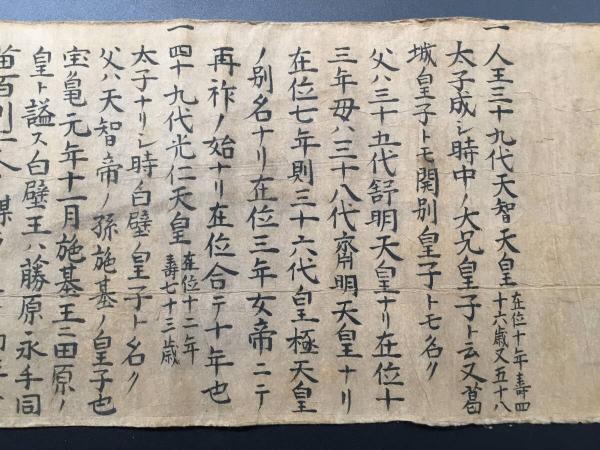 一人王三十九代天智天皇 在位十年壽四
十六歳又五十八
太子成シ時中ノ大兄皇子ト云又葛
城皇子トモ開別皇子トモ名ク
父ハ三十五代舒明天皇ナリ在位十
三年母ハ三十八代齊明天皇ナリ
在位七年則三十六代皇極天皇
ノ別名ナリ在位三年女帝ニテ
再祚ノ始ナリ在位合テ十年也
一四十九代光仁天皇 在位十二年
壽七十三歳
太子ナリシ時白壁ノ皇子ト名ク
父ハ天智帝ノ孫施基ノ皇子也
宝亀元年十一月施基王ニ田原ノ
皇ト謚ス白壁王ハ藤原ノ永手同
百川